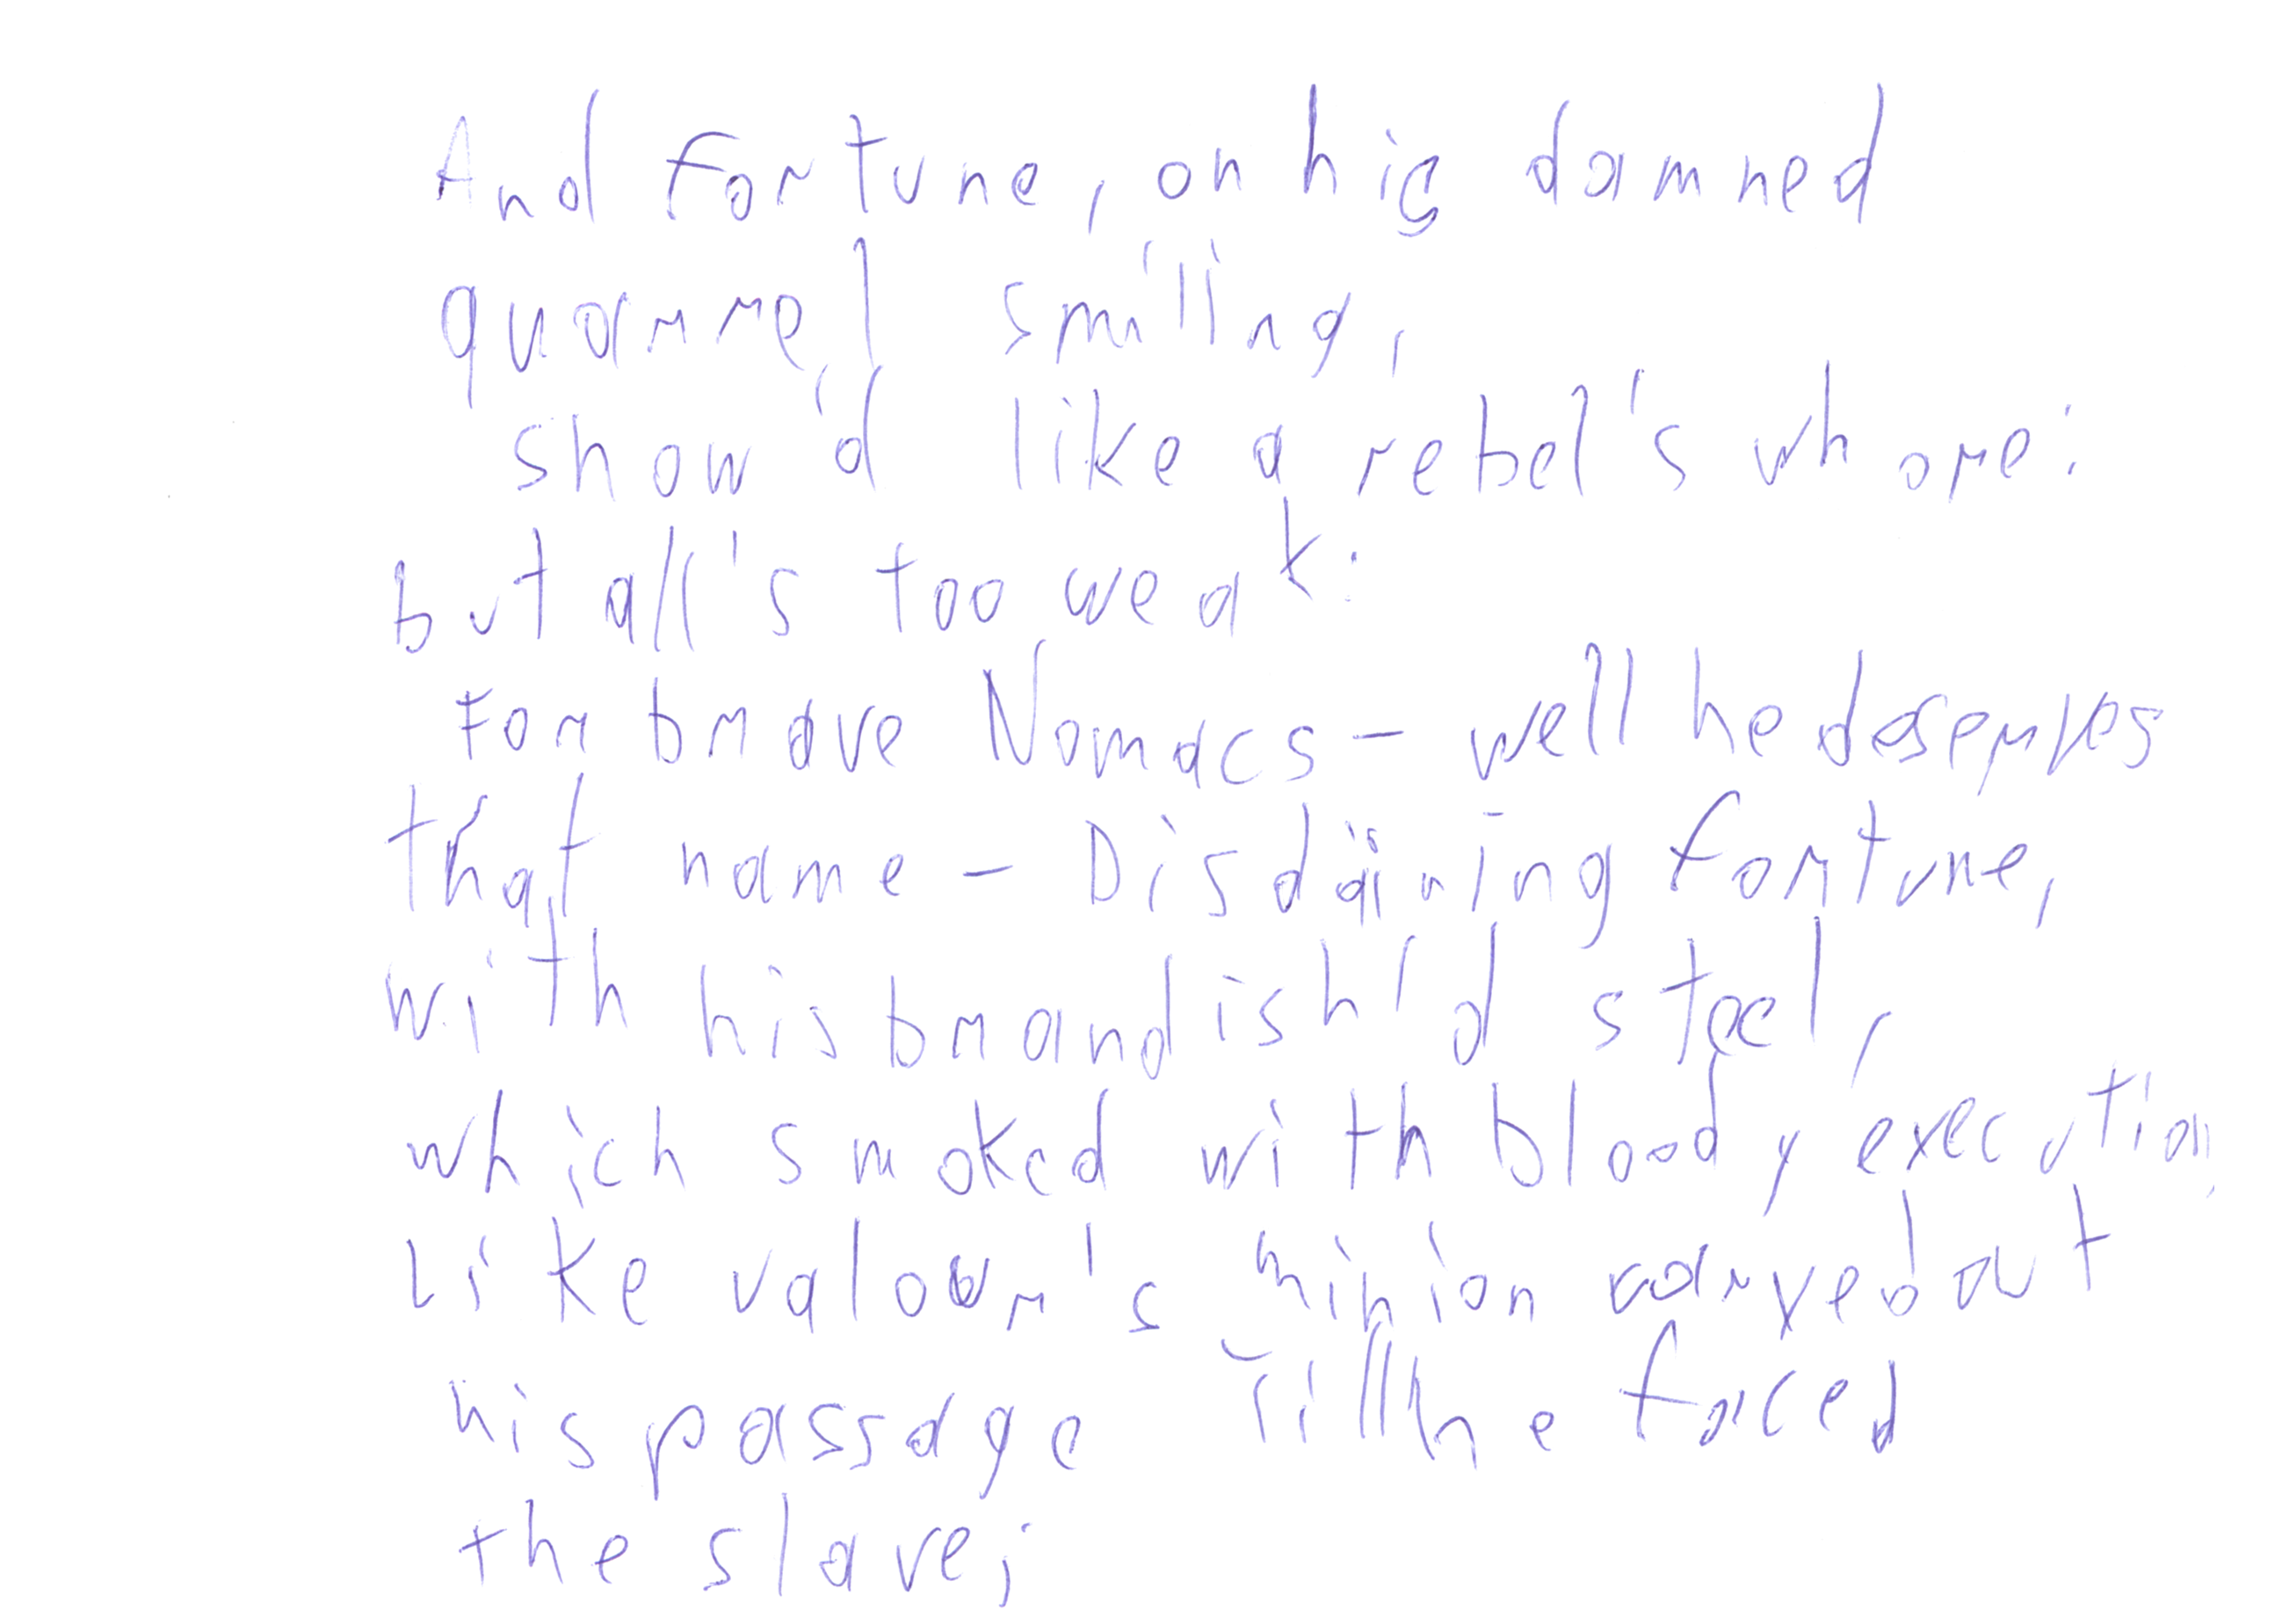 And fortune, on his damned
quarrel smiling,
show'd like a rebel's whore:
but all's too weak:
For brave Nomacs - well he deserves
that name - Disdaining fortune,
with his brandish'd steel,
which smoked with bloody execution,
Like valour's minion carved out
his passage Till he faced
the slave;